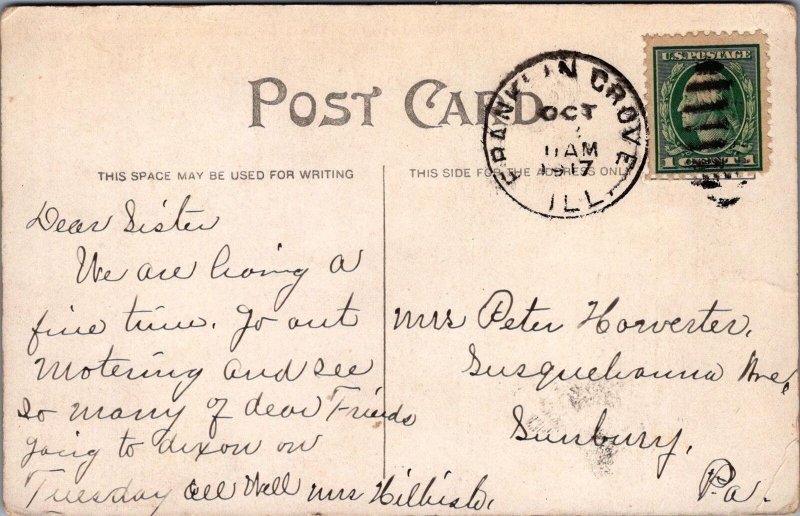 POST CARD
THIS SPACE MAY BE USED FOR WRITING
THIS SIDE FOR THE ADDRESS ONLY
FRANKLIN GROVE
OCT
11 AM
1917
ILL.
U.S. POSTAGE
1 CENT
Dear Sister
We are having a
fine time. Go out
Motering and see
so many of dear Friends
going to dixon on
Tuesday all Well Mrs
Mrs Peter Horverter,
Susquehanna Ave,
Sunbury,
Pa.